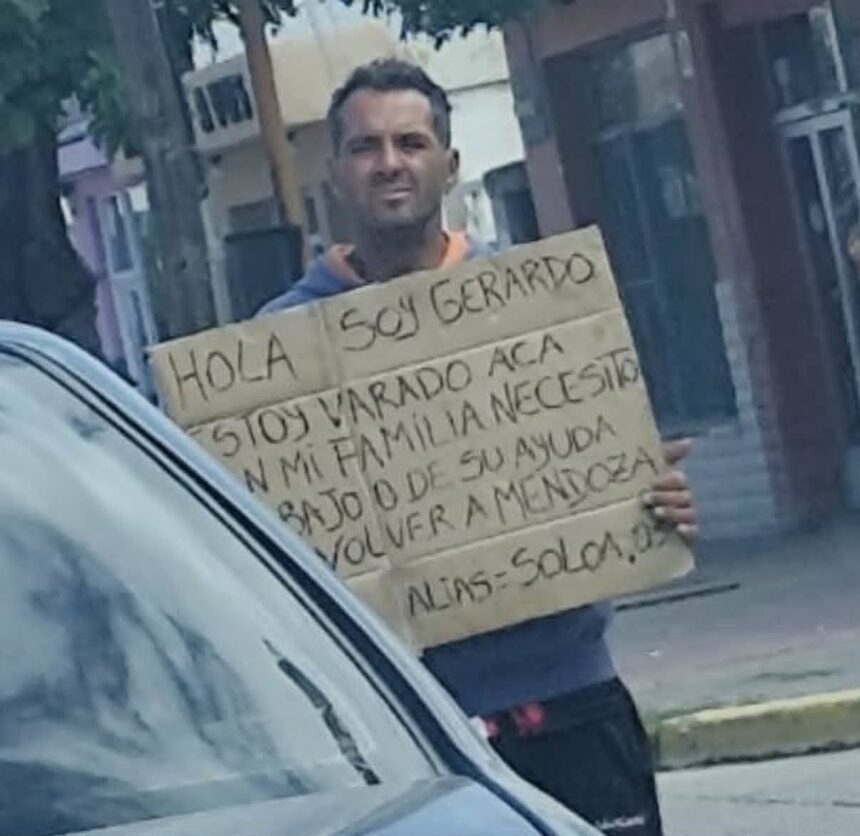 HOLA SOY GERARDO
ESTOY VARADO ACA
N MI FAMILIA NECESITO
BAJO O DE SU AYUDA
VOLVER A MENDOZA
ALIAS=SOLCA.